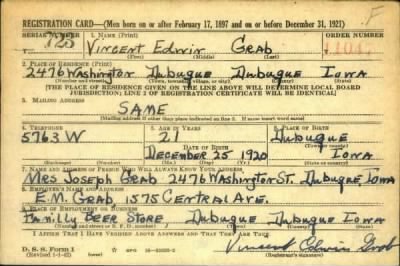 F
REGISTRATION CARD—(Men born on or after February 17, 1897 and on or before December 31, 1921)
SERIAL NUMBER 1. NAME (Print) ORDER NUMBER
125 Vincent Edwin Grab 11047
(First) (Middle) (Last)
2. PLACE OF RESIDENCE (Print)
2476 Washington Dubuque Dubuque Iowa
(Number and street) (Town, township, village, or city) (County) (State)
[THE PLACE OF RESIDENCE GIVEN ON THE LINE ABOVE WILL DETERMINE LOCAL BOARD
JURISDICTION; LINE 2 OF REGISTRATION CERTIFICATE WILL BE IDENTICAL]
3. MAILING ADDRESS
SAME
[Mailing address if other than place indicated on line 2. If same insert word same]
4. TELEPHONE 5. AGE IN YEARS 6. PLACE OF BIRTH
5763 W 21 Dubuque
DATE OF BIRTH (Town or county)
December 25 1920 Iowa
(Exchange) (Number) (Mo.) (Day) (Yr.) (State or country)
7. NAME AND ADDRESS OF PERSON WHO WILL ALWAYS KNOW YOUR ADDRESS
Mrs Joseph Grab 2476 Washington St. Dubuque, Iowa
8. EMPLOYER'S NAME AND ADDRESS
E.M. Grab, 1575 Central Ave.
9. PLACE OF EMPLOYMENT OR BUSINESS
Familly Beer Store, Dubuque Dubuque Iowa
(Number and street or R. F. D. number) (Town) (County) (State)
I AFFIRM THAT I HAVE VERIFIED ABOVE ANSWERS AND THAT THEY ARE TRUE.
D. S. S. Form 1
(Revised 1-1-42) (over)
Vincent Edwin Grab